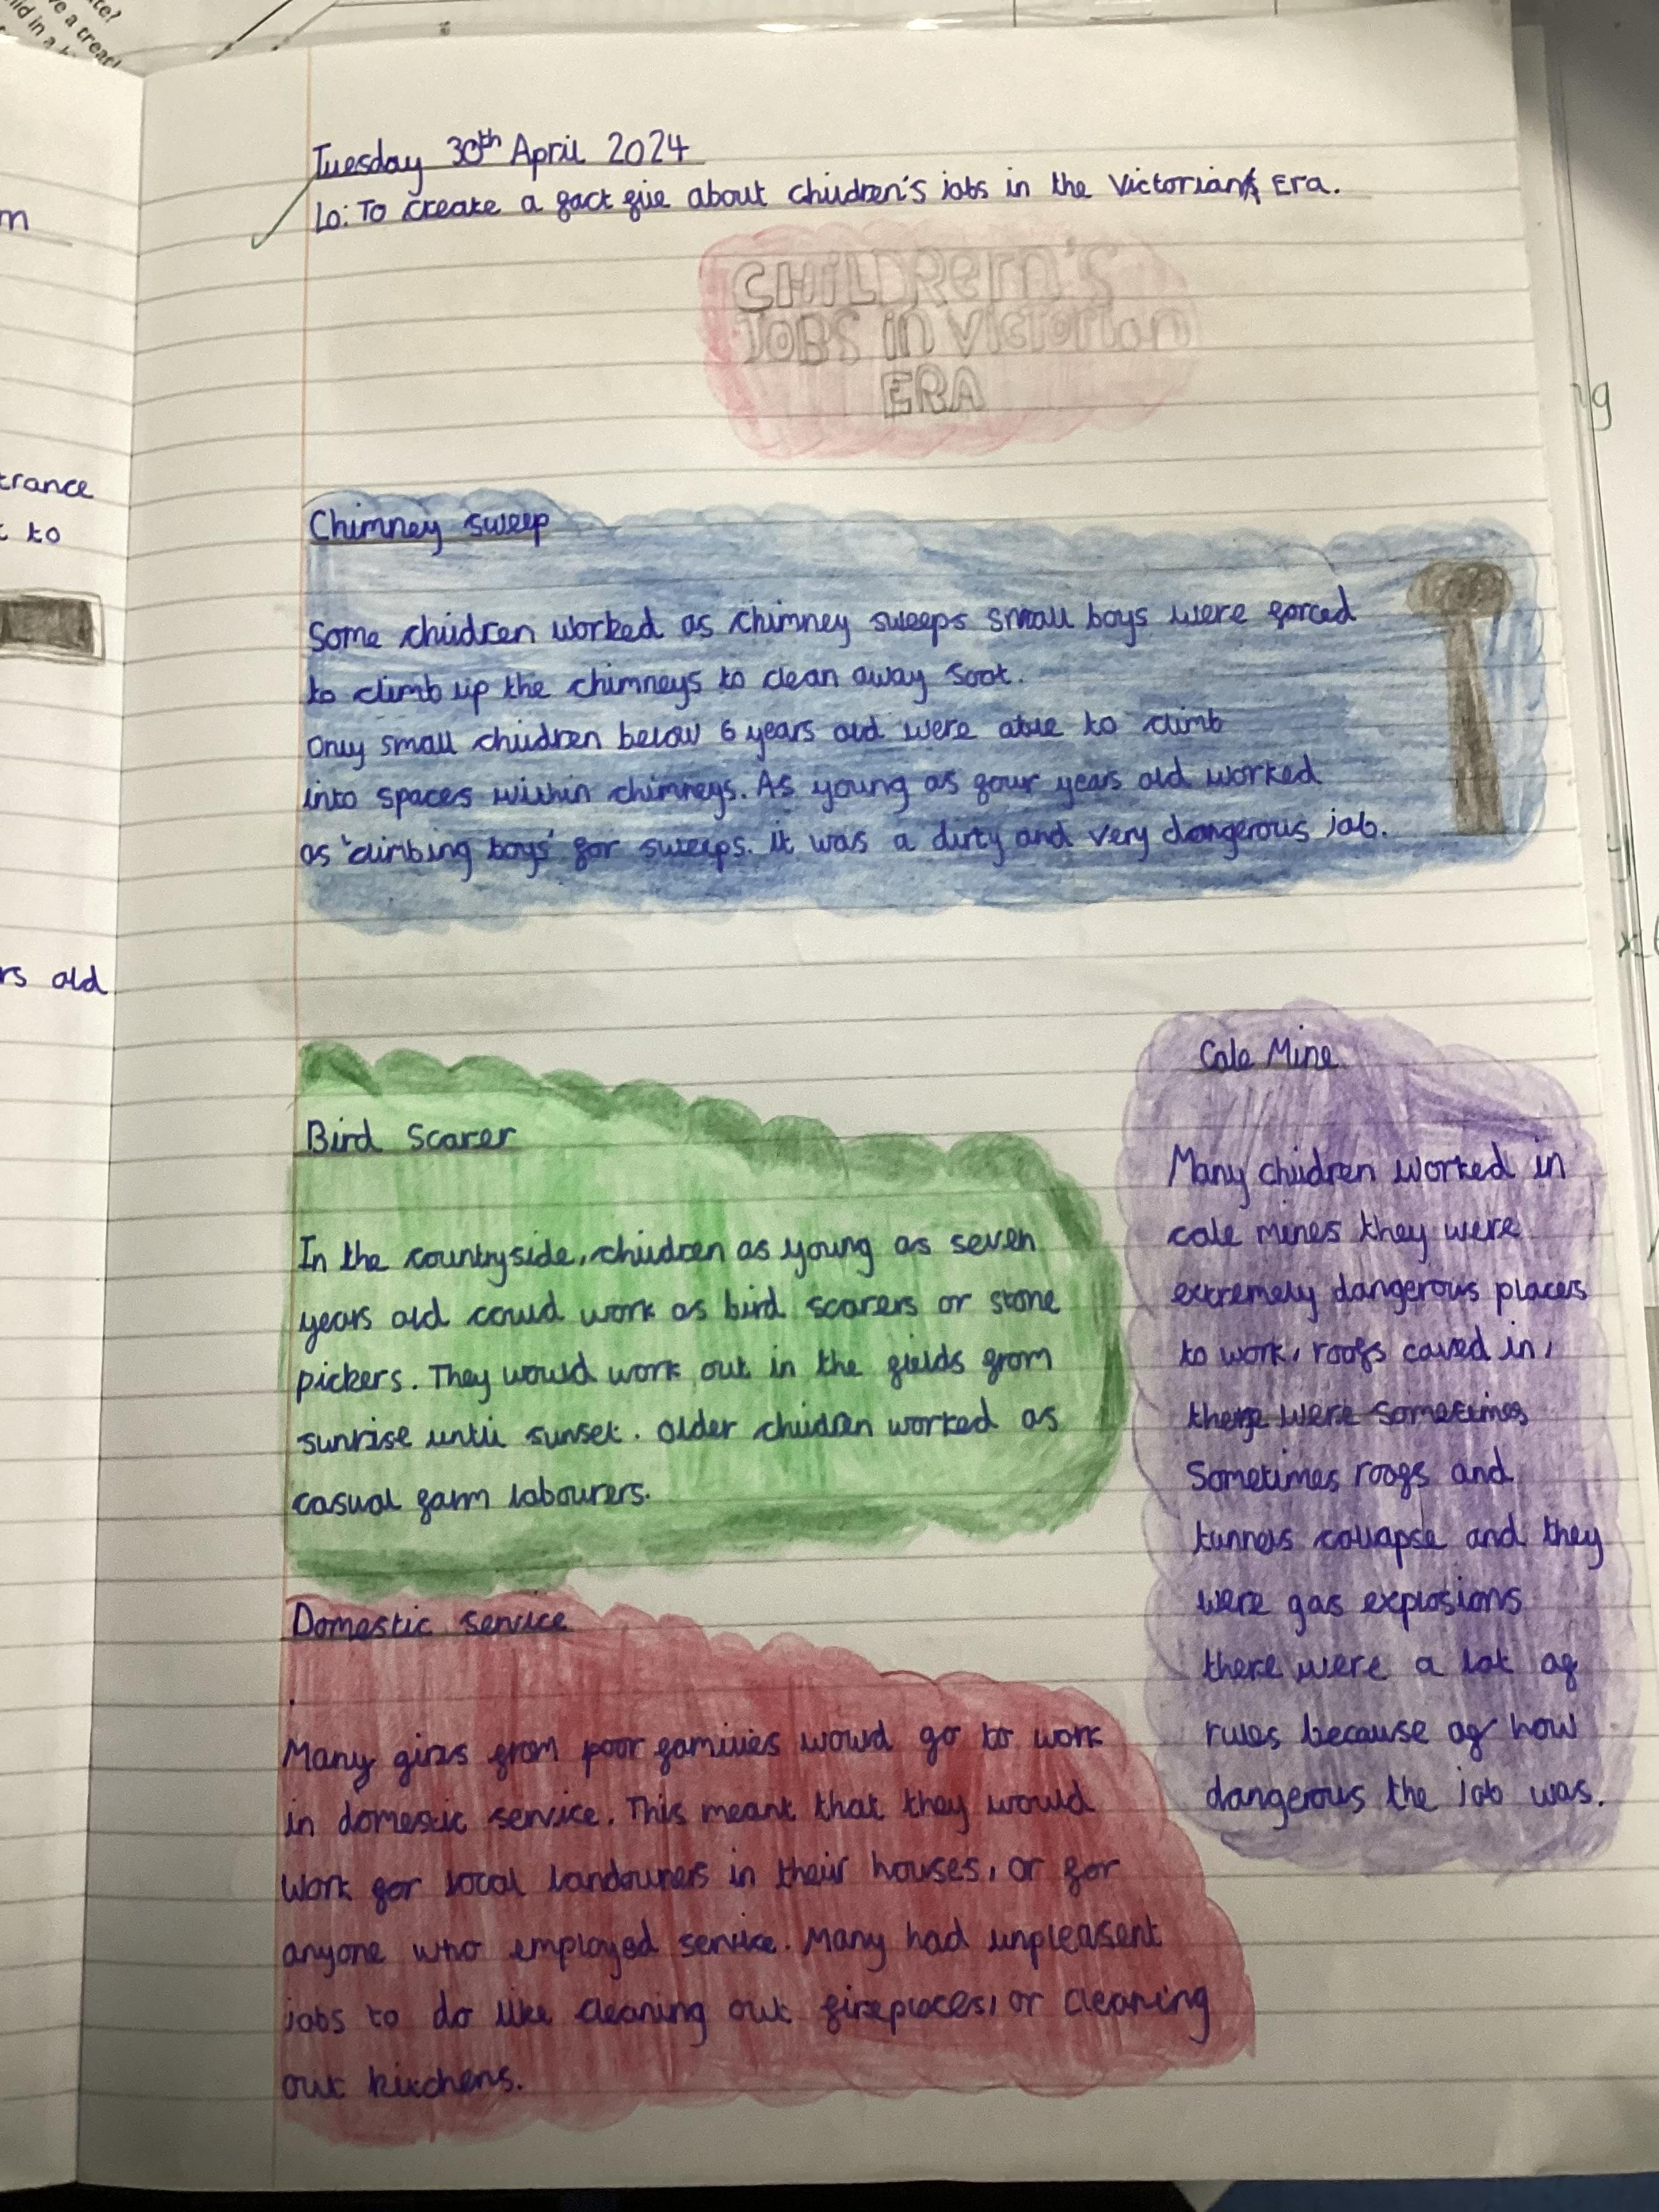 Tuesday 30th April 2024
Lo: To create a fact file about children's jobs in the Victorian Era.
CHILDRern's
JOBS in Victorian
ERA
Chimney sweep
Some children worked as chimney sweeps small boys were forced
to climb up the chimneys to clean away soot.
Only small children below 6 years old were able to climb
into spaces within chimneys. As young as four years old worked
as 'climbing boys' for sweeps. it was a dirty and very dangerous job.
Bird Scarer
In the countryside, children as young as seven
years old could work as bird scarers or stone
pickers. They would work out in the fields from
sunrise until sunset. Older children worked as
casual farm labourers.
Cole Mine
Many children worked in
cole mines they were
extremely dangerous places
to work, roofs caved in,
there were sometimes
Sometimes roofs and
tunnels collapse and they
were gas explosions
there were a lot of
rules because of how
dangerous the job was.
Domestic service
Many girls from poor families would go to work
in domestic service. This meant that they would
work for local landowners in their houses, or for
anyone who employed service. Many had unpleasent
jobs to do like cleaning out fireplaces, or cleaning
out kitchens.
m
trance
to
rs old
ve a treat
ild in a
g